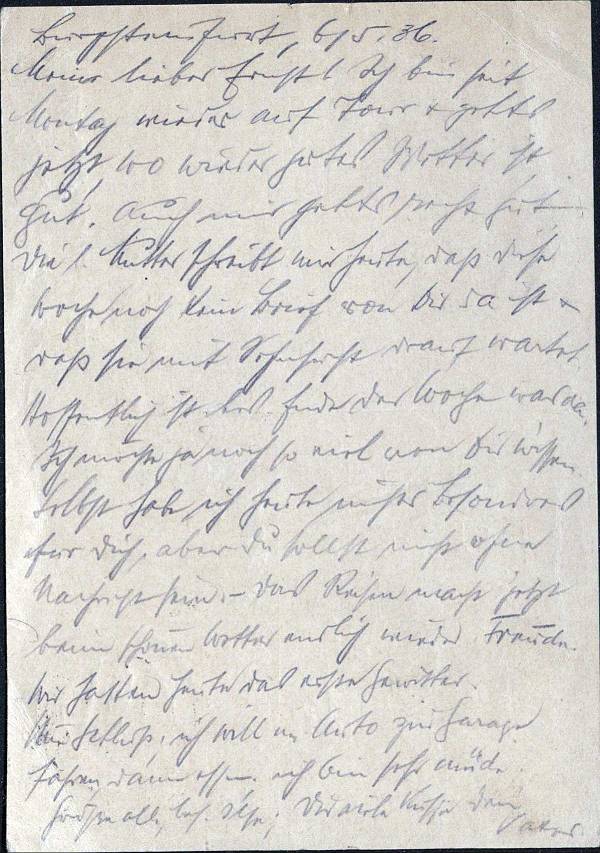 Burgsteinfurt, 6/5.36.
Mein lieber Ernst! Ich bin seit
Montag wieder auf Tour & gehts
jetzt wo wieder gutes Wetter ist
gut. Auch mir gehts recht gut.
Die l. Mutter schreibt mir heute, daß diese
Woche noch kein Brief von Dir da ist &
daß sie mit Sehnsucht drauf wartet.
Hoffentlich ist bis Ende der Woche was da.
Ich möchte ja noch so viel von Dir wissen.
Selbst habe ich heute nichts besonderes
für Dich, aber Du sollst nicht ohne
Nachricht sein. – Das Reisen macht jetzt
beim schönen Wetter endlich wieder Freude.
Wir hatten heute das erste Gewitter.
Nun Schluß, ich will m. Auto zur Garage
fahren, dann essen. ich bin sehr müde.
Grüße alle, bes. Ilse; Dir viele Küsse Dein
Vater